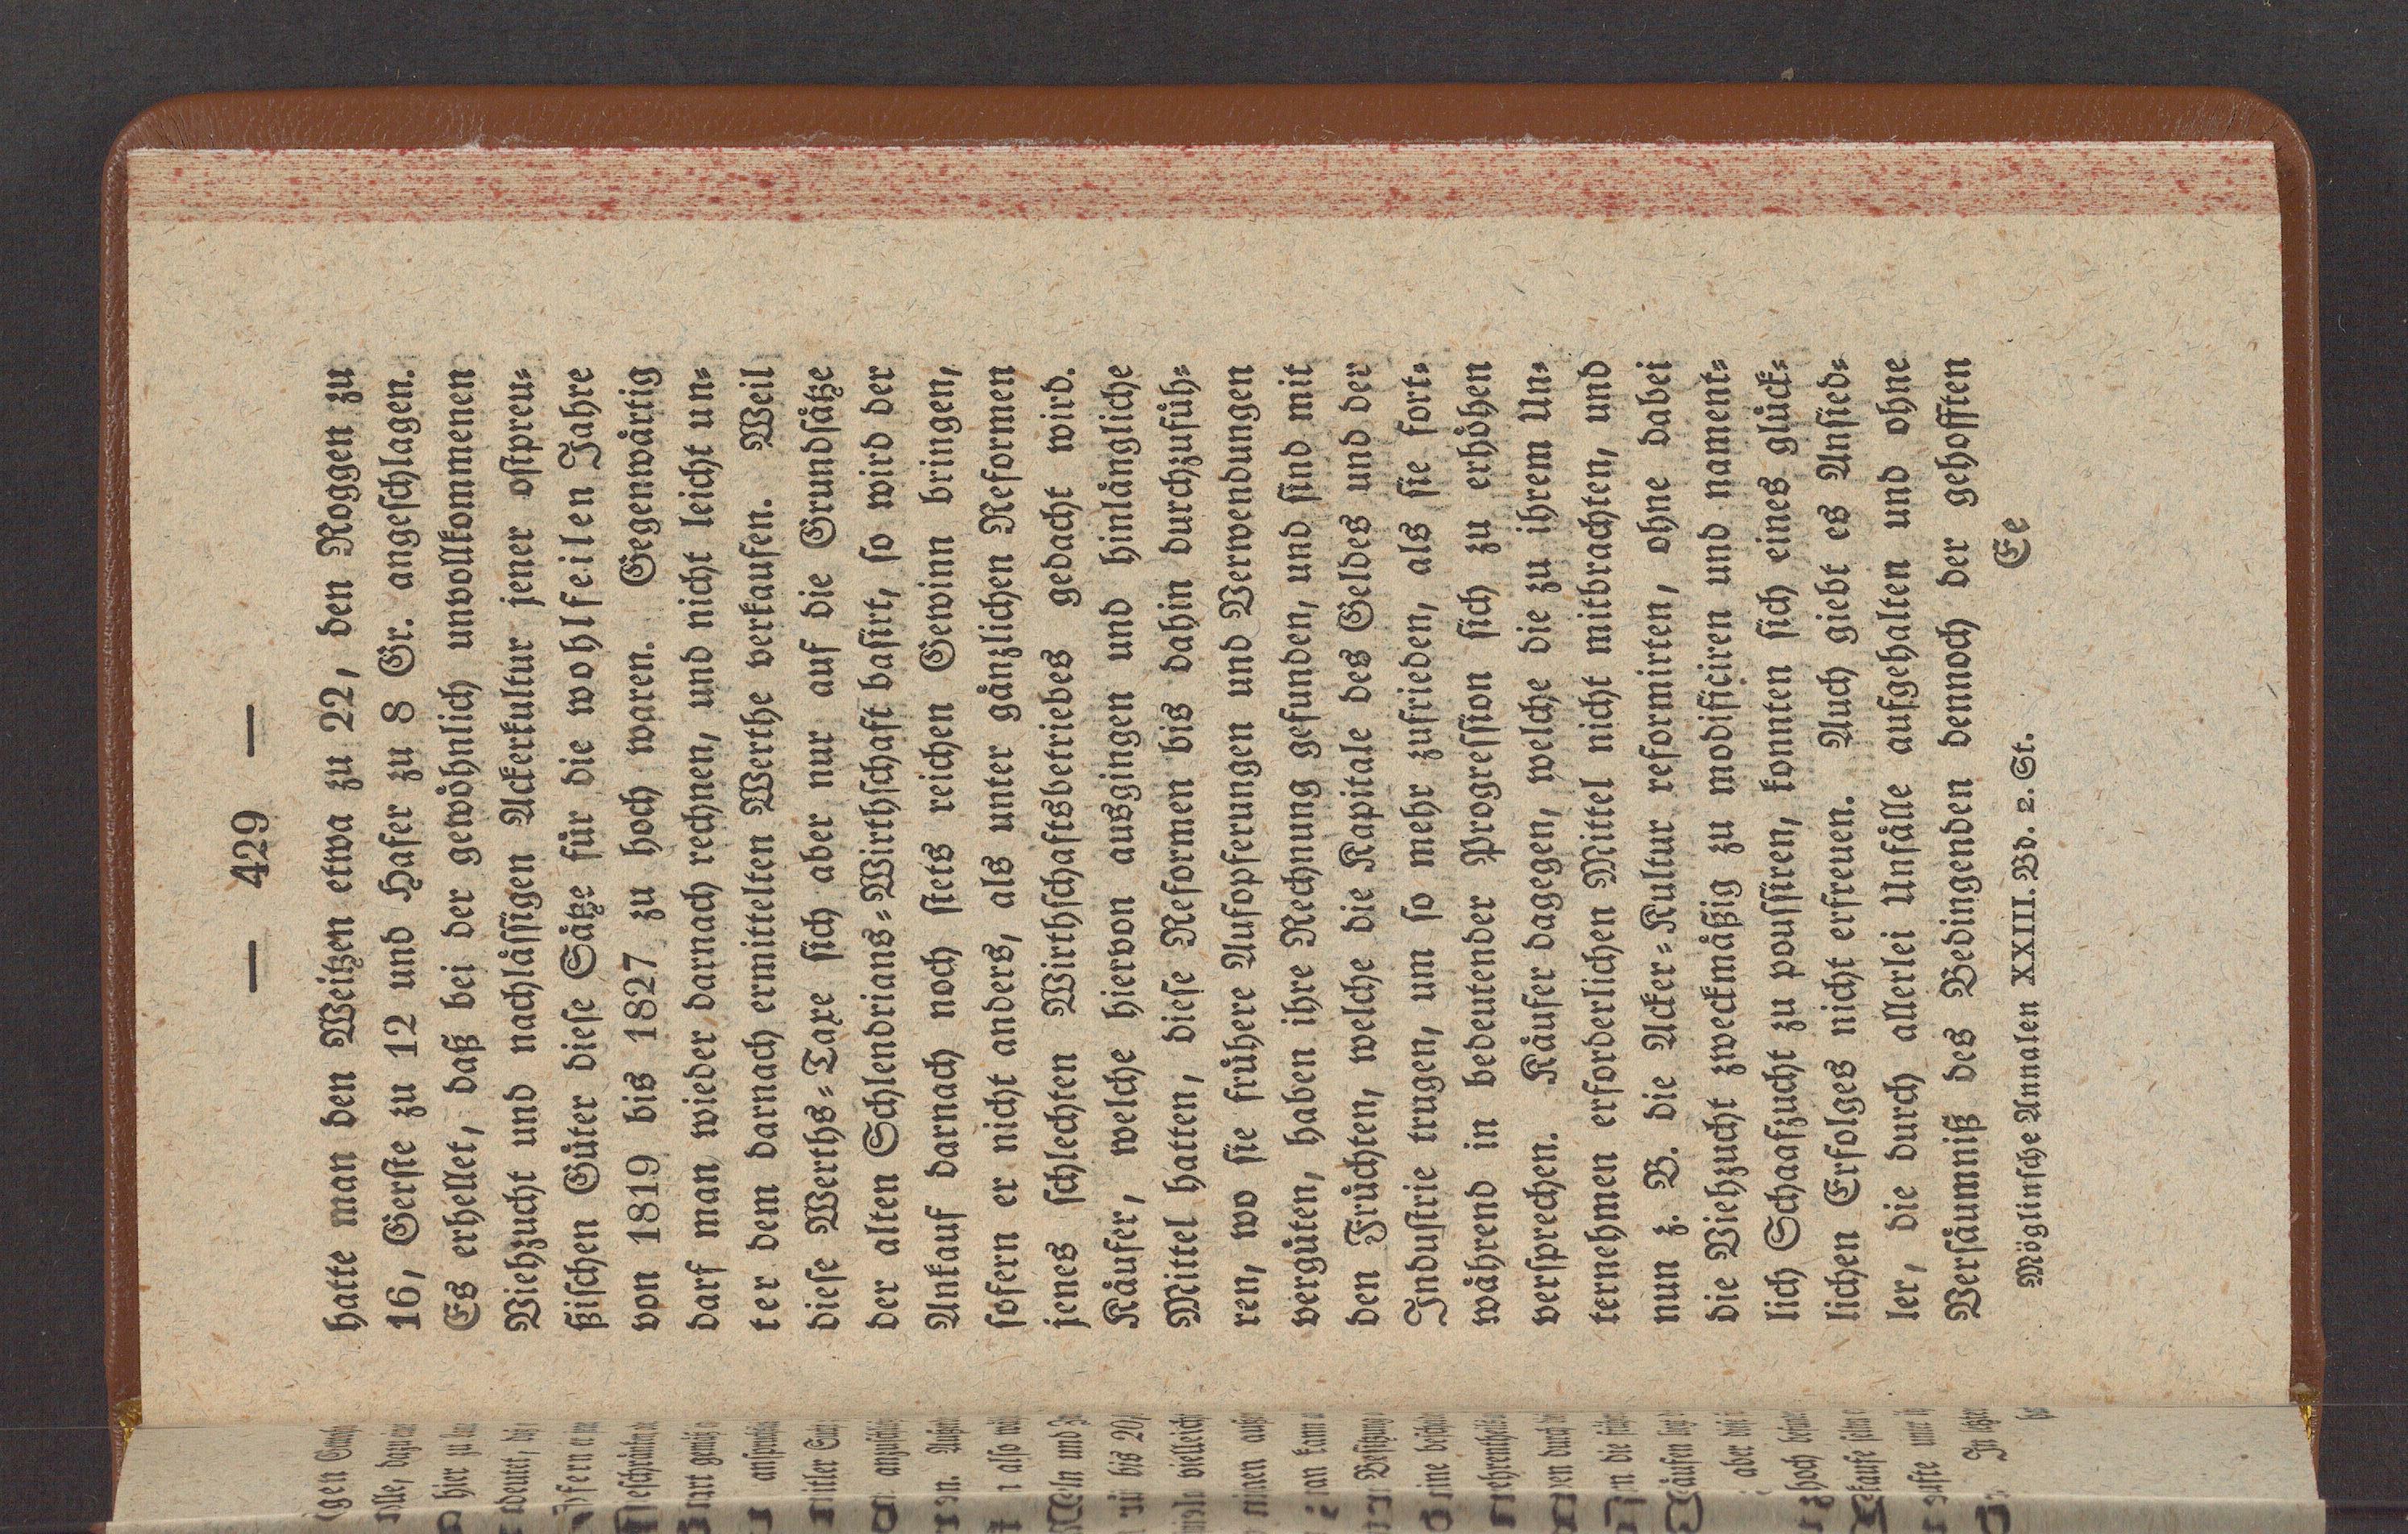 — 429 —
hatte man den Weitzen etwa zu 22, den Roggen zu
16, Gerste zu 12 und Hafer zu 8 Gr. angeschlagen.
Es erhellet, daß bei der gewöhnlich unvollkommenen
Viehzucht und nachlässigen Ackerkultur jener ostpreu-
ßischen Güter diese Sätze für die wohlfeilen Jahre
von 1819 bis 1827 zu hoch waren. Gegenwärtig
darf man wieder darnach rechnen, und nicht leicht un-
ter dem darnach ermittelten Werthe verkaufen. Weil
diese Werths-Taxe sich aber nur auf die Grundsätze
der alten Schlendrians-Wirthschaft basirt, so wird der
Ankauf darnach noch stets reichen Gewinn bringen,
sofern er nicht anders, als unter gänzlichen Reformen
jenes schlechten Wirthschaftsbetriebes gedacht wird.
Käufer, welche hiervon ausgingen und hinlängliche
Mittel hatten, diese Reformen bis dahin durchzufüh-
ren, wo sie frühere Aufopferungen und Verwendungen
vergüten, haben ihre Rechnung gefunden, und sind mit
den Früchten, welche die Kapitale des Geldes und der
Industrie trugen, um so mehr zufrieden, als sie fort-
während in bedeutender Progression sich zu erhöhen
versprechen. Käufer dagegen, welche die zu ihrem Un-
ternehmen erforderlichen Mittel nicht mitbrachten, und
nun z. B. die Acker-Kultur reformirten, ohne dabei
die Viehzucht zweckmäßig zu modificiren und nament-
lich Schaafzucht zu poussiren, konnten sich eines glück-
lichen Erfolges nicht erfreuen. Auch giebt es Ansied-
ler, die durch allerlei Unfälle aufgehalten und ohne
Versäumniß des Bedingenden dennoch der gehofften
Möglinsche Annalen XXIII. Bd. 2. St. Ee